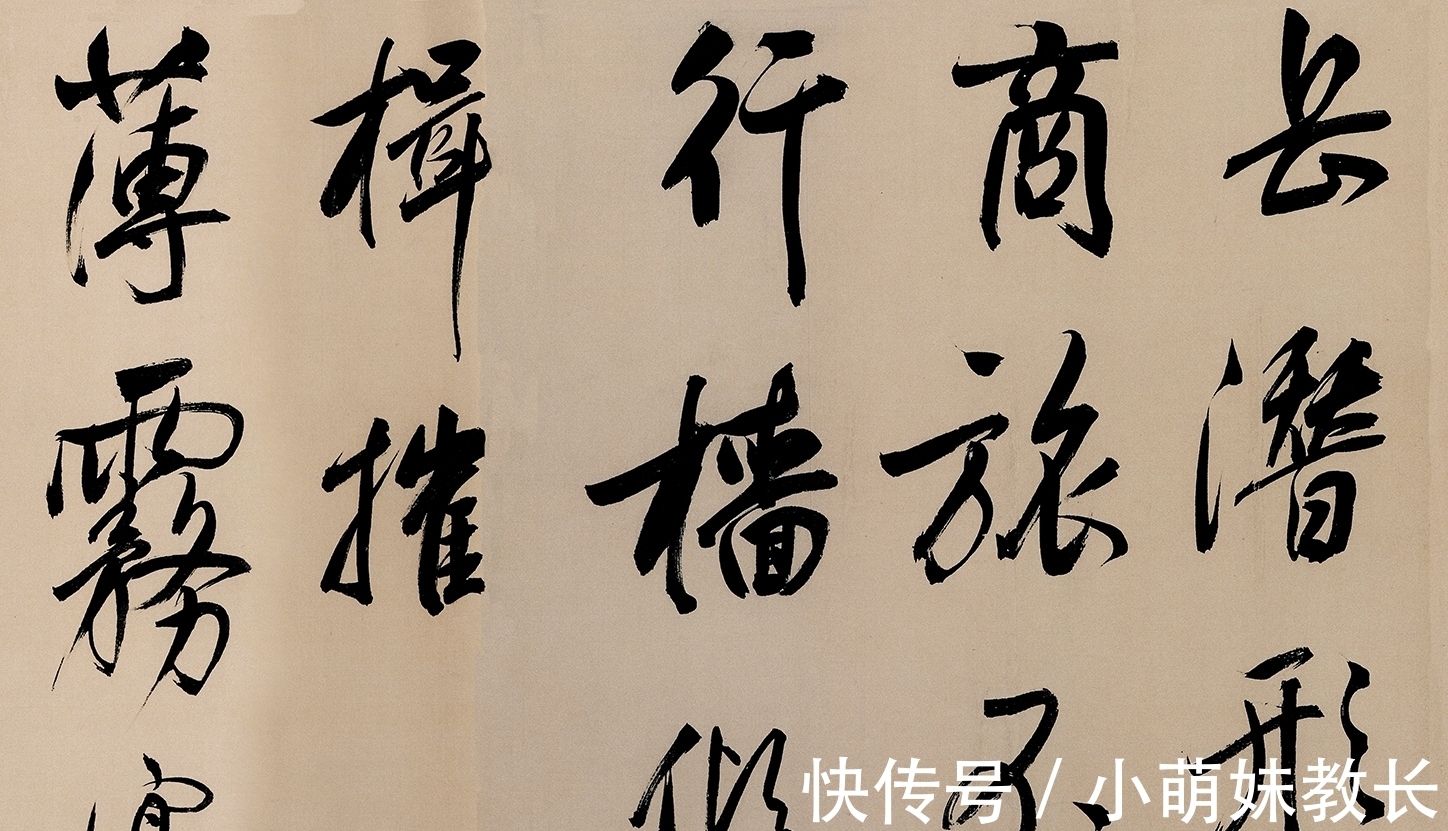 岳潛形
商旅不
行檣
楫摧
薄霧
快传号 / 小萌妹教长